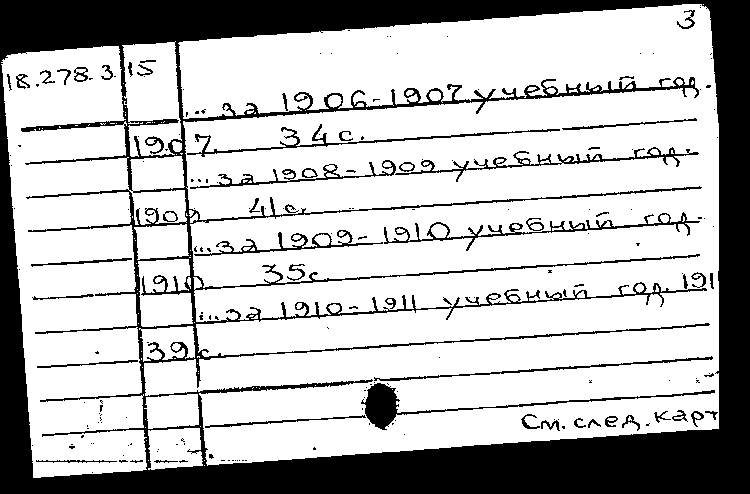 3
18.278.3 15
... за 1906-1907 учебный год.
1907. 34 с.
... за 1908-1909 учебный год.
1909. 41 с.
... за 1909-1910 учебный год.
1910. 35 с.
... за 1910-1911 учебный год. 191
39 с.
См. след. карт